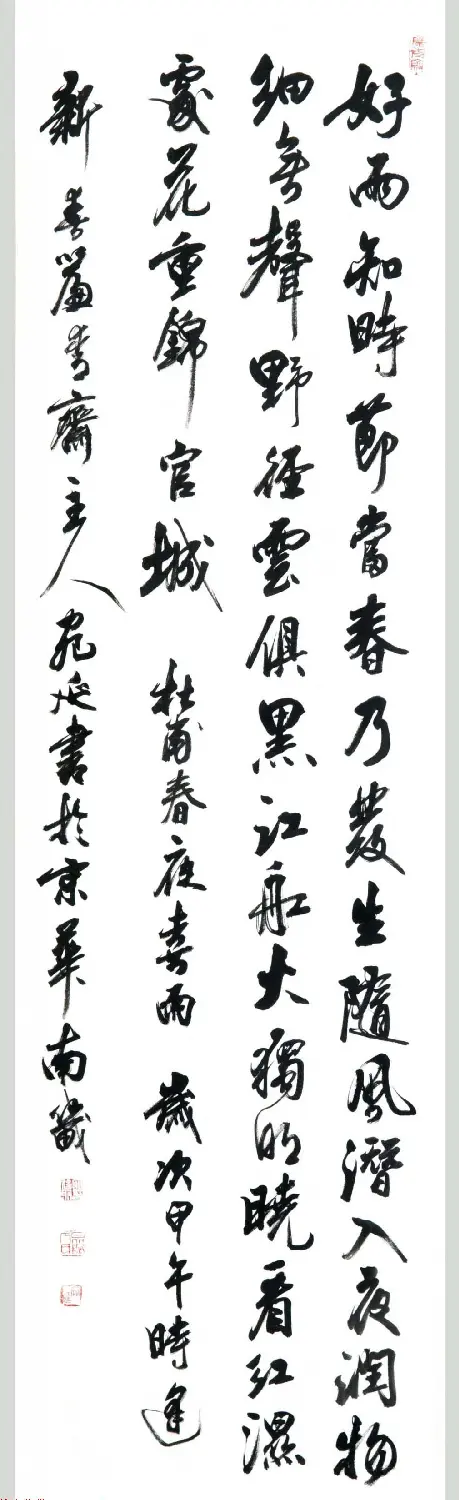 好雨知時節當春乃發生隨風潛入夜潤物
細無聲野徑雲俱黑江船火獨明曉看紅濕
處花重錦官城 杜甫春夜喜雨 歲次甲午時逢
新春 齋主人 書於京華南